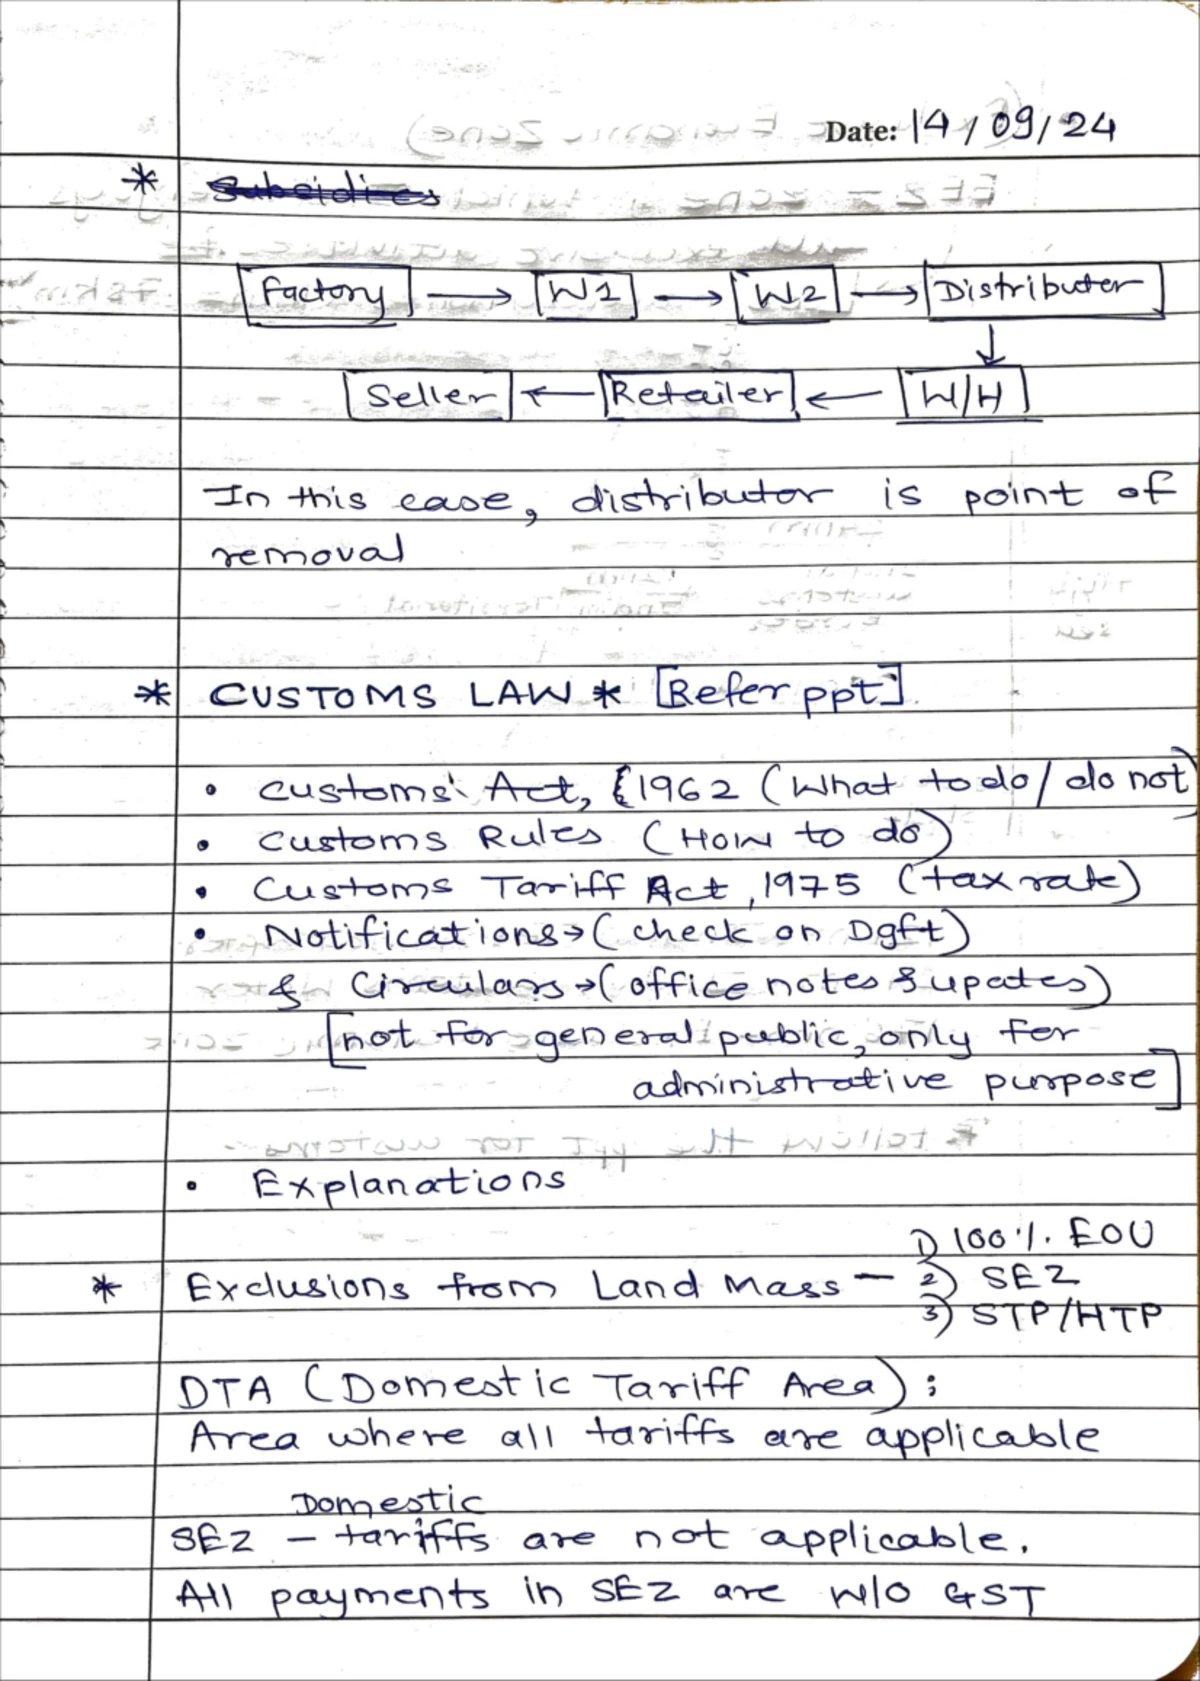 Date: 14/09/24
* Subsidies
Factory → W1 → W2 → Distributer
↓
Seller ← Retailer ← W/H
In this case, distributor is point of
removal
* CUSTOMS LAW * [Refer ppt]
• Customs Act, 1962 (What to do / do not)
• Customs Rules (HOW to do)
• Customs Tariff Act, 1975 (tax rate)
• Notifications → (check on Dgft)
& Circulars → (office notes & upates)
[not for general public, only for
administrative purpose]
• Explanations
1) 100%. EOU
* Exclusions from Land Mass – 2) SEZ
3) STP/HTP
DTA (Domestic Tariff Area) :
Area where all tariffs are applicable
Domestic
SEZ – tariffs are not applicable.
All payments in SEZ are W/O GST